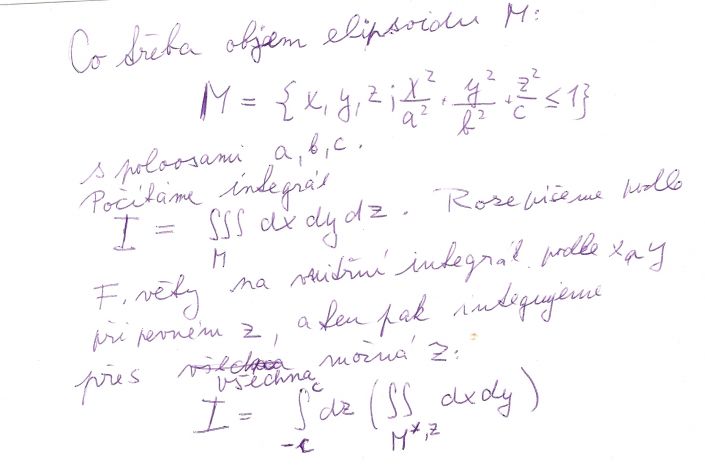 Co třeba objem elipsoidu M:
M = { x, y, z ; x²/a² + y²/b² + z²/c ≤ 1}
s poloosami a, b, c.
Počítáme integrál
I = ∭_M dx dy dz. Rozepíšeme podle
F. věty na vnitřní integrál podle x a y
při pevném z, a ten pak integujeme
přes všechna možná z:
I = ∫_{-c}^{c} dz ( ∬_{M^{x,z}} dx dy )